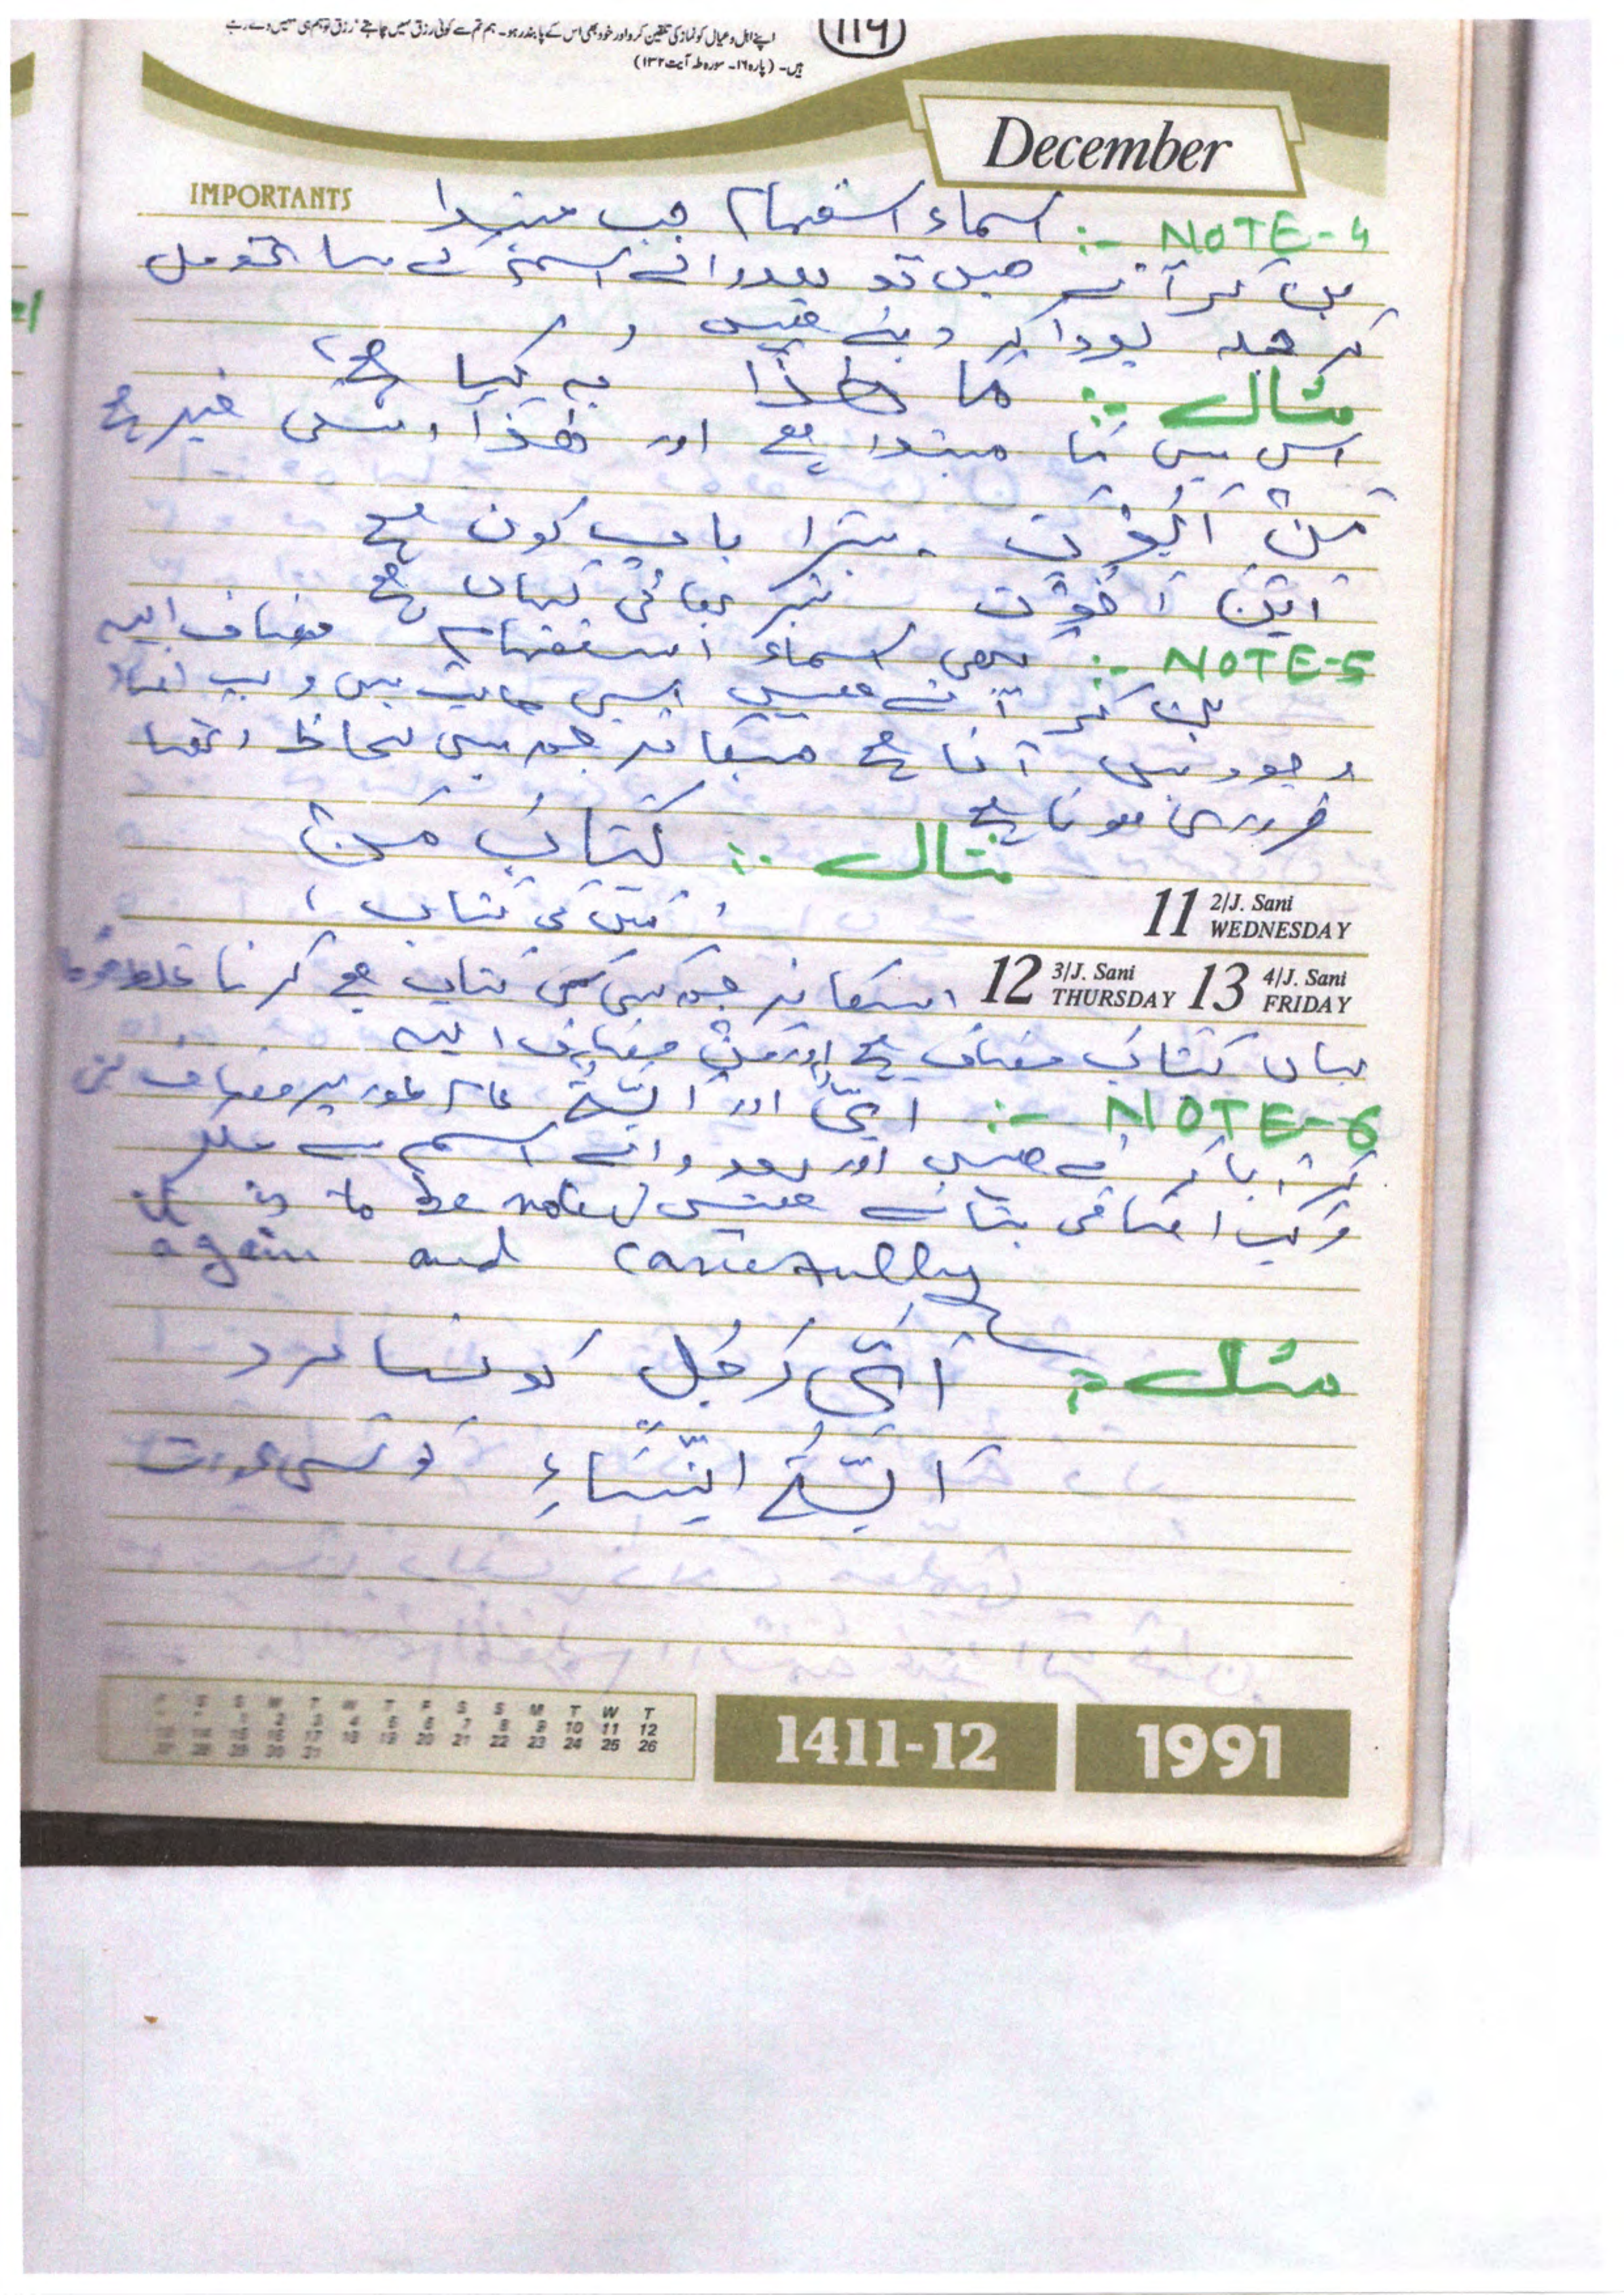 اپنے اہل و عیال کو نماز کی تلقین کرو اور خود بھی اس کے پابند رہو۔ ہم تم سے کوئی رزق نہیں چاہتے، رزق تو ہم ہی تمہیں دے رہے
ہیں۔ (پارہ ۱۶۔ سورہ طہ آیت ۱۳۲)
119
December
IMPORTANTS
NOTE-4 :- اسماء استفہام جب مبتدا
بن کر آتے ھیں تو بعد والے اسم کے ساتھ مل
کر جملہ پورا کر دیتے ھیں
مثال :- ما ھٰذا یہ کیا ہے؟
اس میں مَا مبتدا ہے اور ھٰذا اسکی خبر ہے
مَنْ اَبُوْكَ تیرا باپ کون ہے
اَیْنَ اَخُوْكَ تیرا بھائی کہاں ہے
NOTE-5 :- کبھی اسماء استفہام مضاف الیہ
بن کر آتے ھیں ایسی حالت میں مرکب اضافی
وجود میں آتا ہے جسکا ترجمہ میں لحاظ رکھنا
ضروری ہوتا ہے
مثال :- كتابُ مَنْ
(کس کی کتاب)
11 2/J. Sani WEDNESDAY
12 3/J. Sani THURSDAY 13 4/J. Sani FRIDAY
اسکا ترجمہ کس کی کتاب ہے کرنا غلط ہوگا
یہاں کتابُ مضاف ہے اور مَنْ مضاف الیہ
NOTE-6 :- اَیُّ اور اَیَّةُ عام طور پر مضاف بن
کر آیا کرتے ھیں اور بعد والے اسم سے ملکر
مرکب اضافی بناتے ھیں it is to be noted
again and carefully
مثال :- اَیُّ رَجُلٍ کونسا مرد
اَیَّةُ النِّسَاءِ کونسی عورت
S S M T W T
7 8 9 10 11 12
21 22 23 24 25 26
1411-12
1991